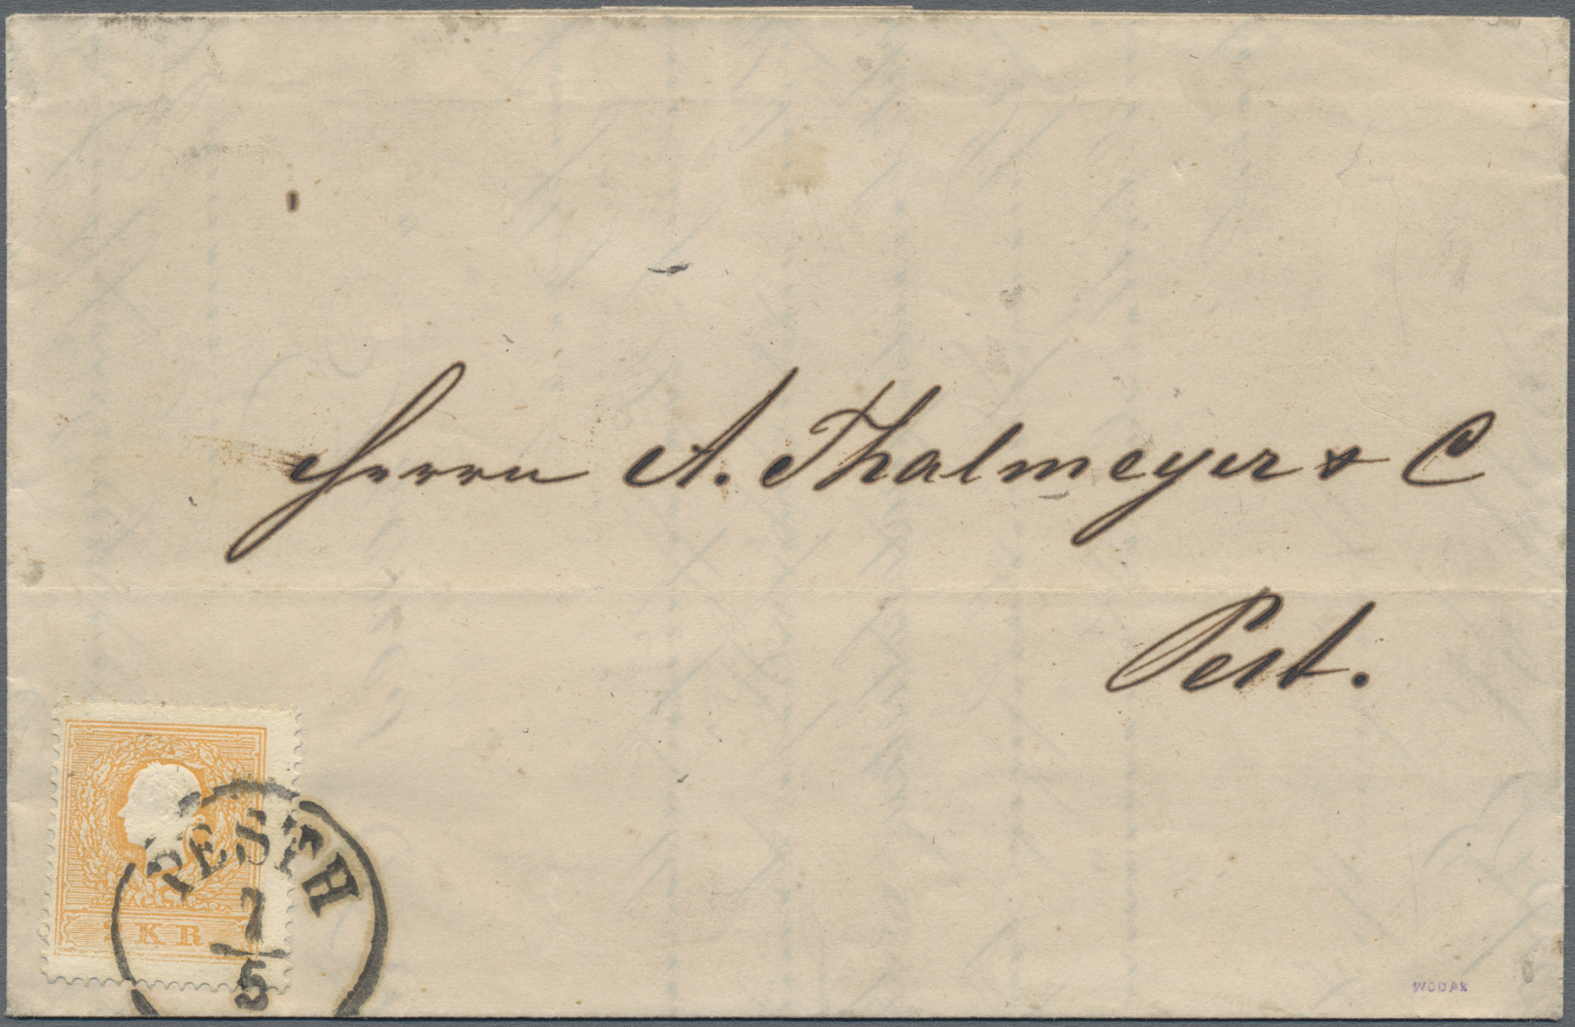 Herrn A. Thalmeyer & C
Pest.
KR
PESTH
7
5
WODAK